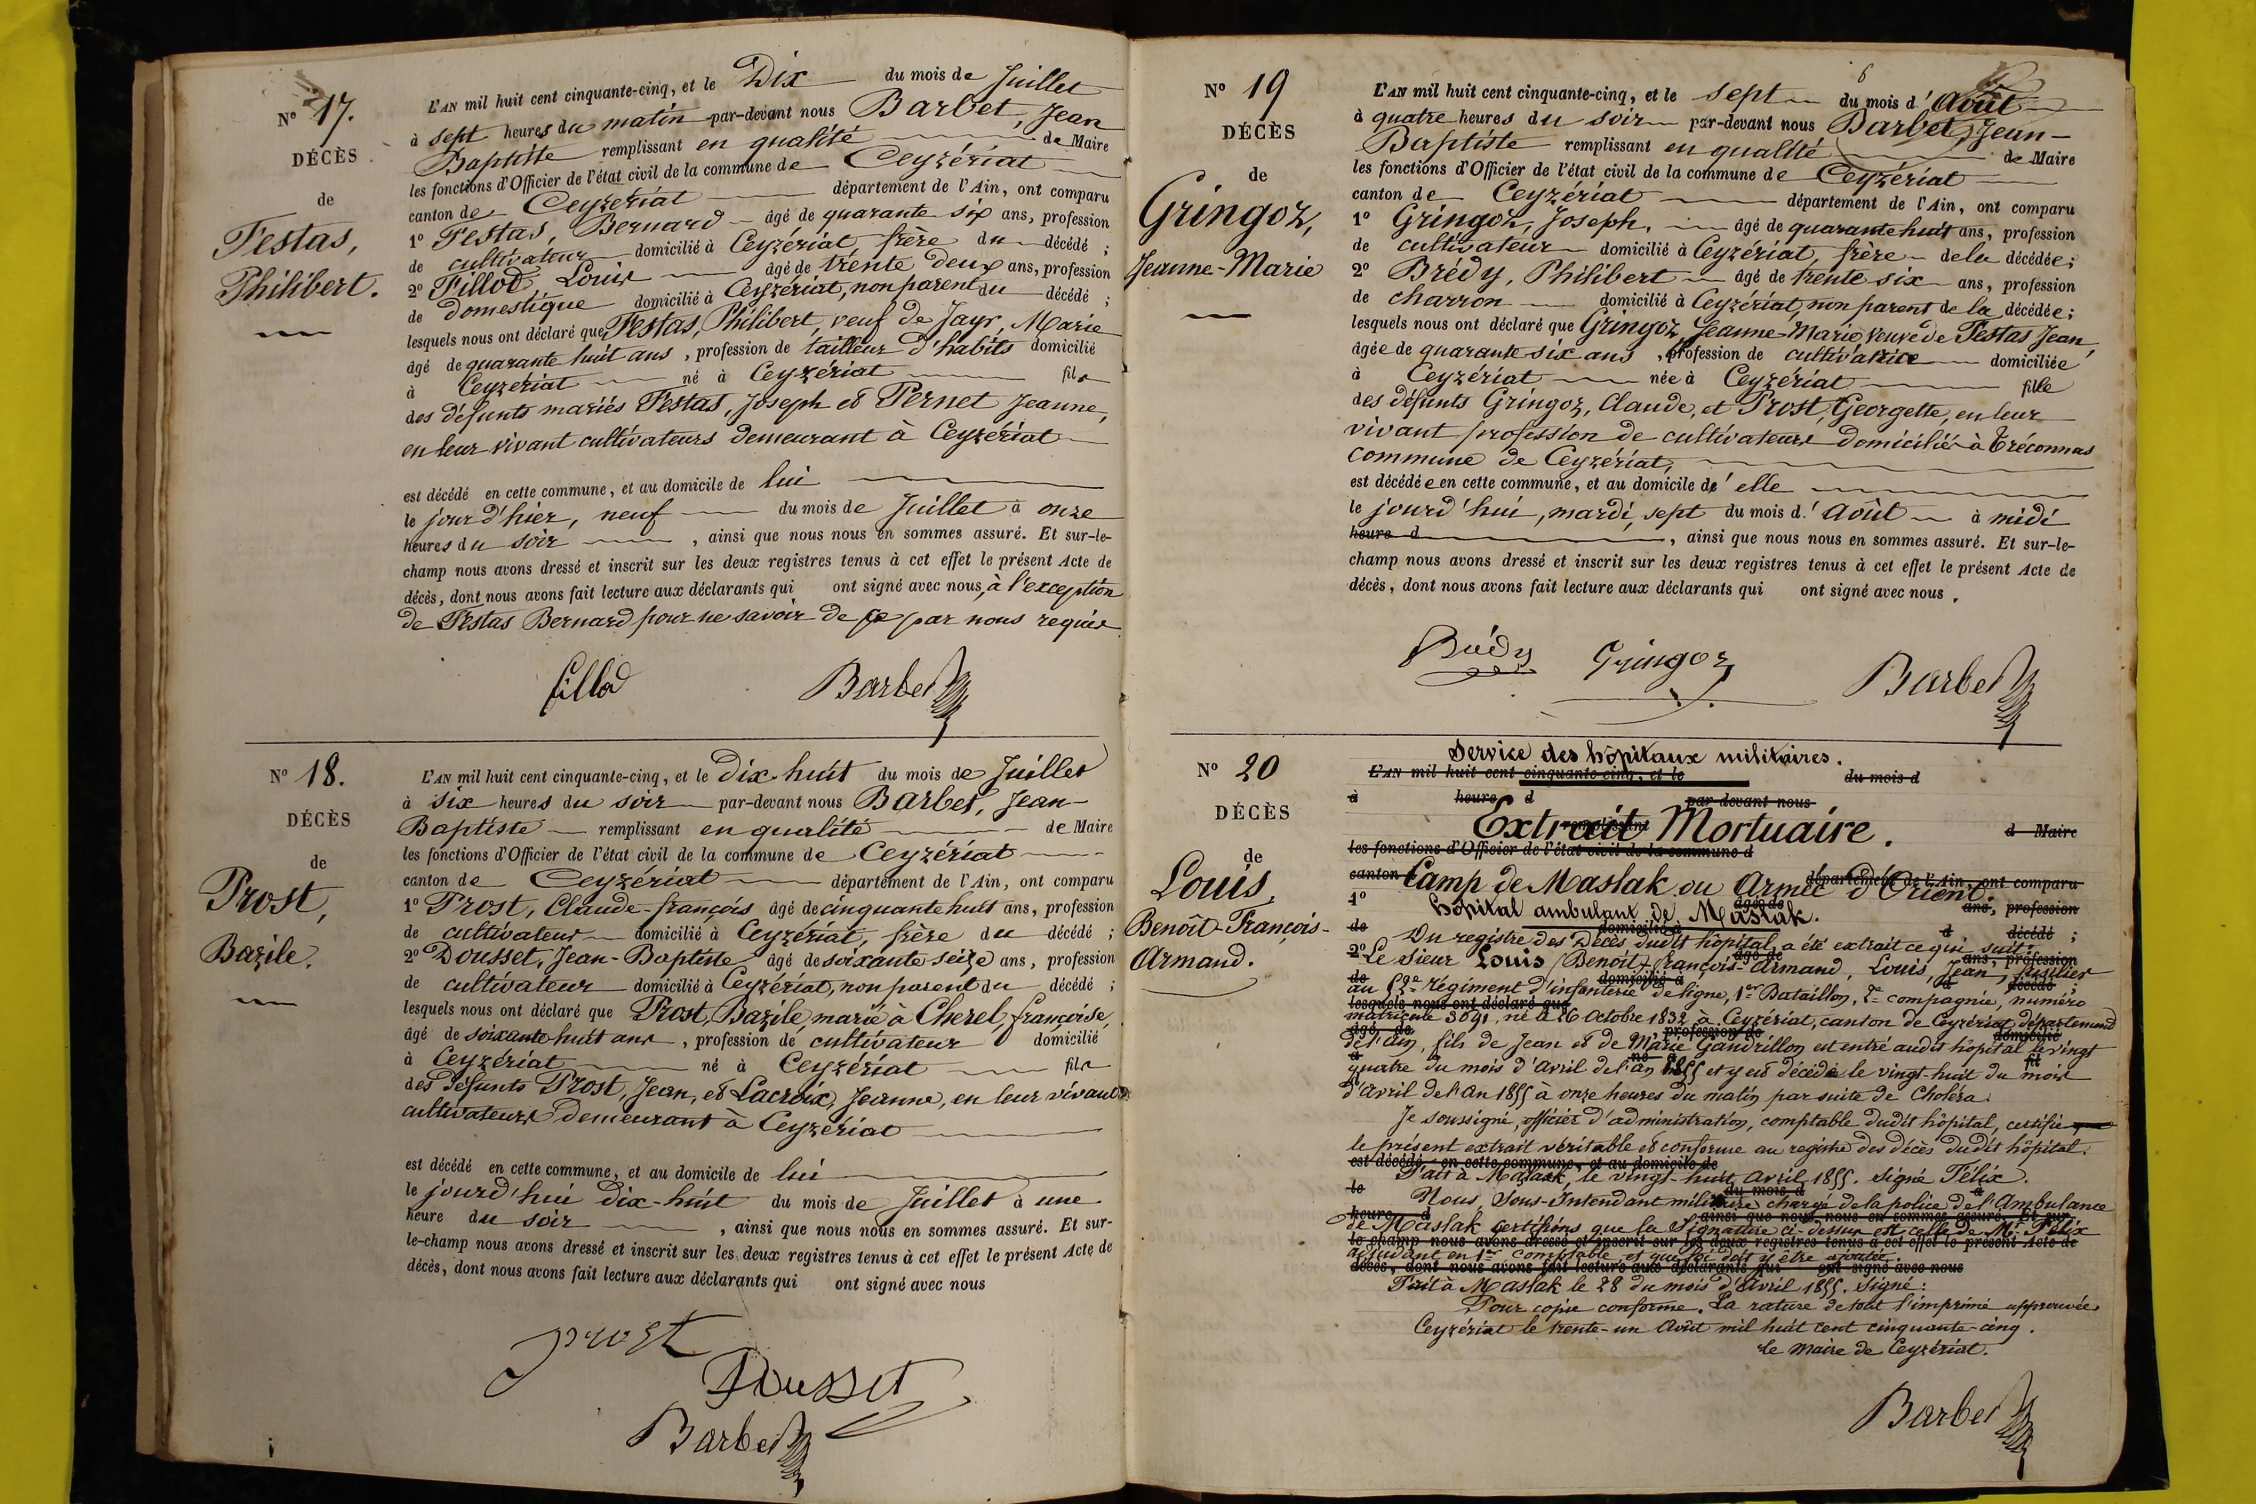 N° 17.
DÉCÈS
de
Festas,
Philibert.
L'AN mil huit cent cinquante-cinq, et le Dix du mois de Juillet
à sept heures du matin par-devant nous Barbet, Jean
Baptiste remplissant en qualité de Maire
les fonctions d'Officier de l'état civil de la commune de Ceyzériat
canton de Ceyzériat département de l'Ain, ont comparu
1° Festas, Bernard âgé de quarante six ans, profession
de cultivateur domicilié à Ceyzériat, frère du décédé ;
2° Fillod, Louis âgé de trente deux ans, profession
de domestique domicilié à Ceyzériat, non parent du décédé ;
lesquels nous ont déclaré que Festas, Philibert, veuf de Jayr, Marie
âgé de quarante huit ans, profession de tailleur d'habits domicilié
à Ceyzériat né à Ceyzériat fils
des défunts mariés Festas, Joseph et Pernet Jeanne,
en leur vivant cultivateurs demeurant à Ceyzériat
est décédé en cette commune, et au domicile de lui
le jour d'hier, neuf du mois de Juillet à onze
heures du soir, ainsi que nous nous en sommes assuré. Et sur-le-
champ nous avons dressé et inscrit sur les deux registres tenus à cet effet le présent Acte de
décès, dont nous avons fait lecture aux déclarants qui ont signé avec nous, à l'exception
de Festas Bernard pour ne savoir de ce par nous requis
fillod Barbet
N° 18.
DÉCÈS
de
Prost,
Bazile.
L'AN mil huit cent cinquante-cinq, et le Dix-huit du mois de Juillet
à six heures du soir par-devant nous Barbet, Jean-
Baptiste remplissant en qualité de Maire
les fonctions d'Officier de l'état civil de la commune de Ceyzériat
canton de Ceyzériat département de l'Ain, ont comparu
1° Prost, Claude-françois âgé de cinquante huit ans, profession
de cultivateur domicilié à Ceyzériat, frère du décédé ;
2° Dousset, Jean-Baptiste âgé de soixante seize ans, profession
de cultivateur domicilié à Ceyzériat, non parent du décédé ;
lesquels nous ont déclaré que Prost, Bazile, marié à Cherel, françoise,
âgé de soixante huit ans, profession de cultivateur domicilié
à Ceyzériat né à Ceyzériat fils
des défunts Prost, Jean, et Lacroix, Jeanne, en leur vivant
cultivateurs demeurant à Ceyzériat
est décédé en cette commune, et au domicile de lui
le jourd'hui Dix-huit du mois de Juillet à une
heure du soir, ainsi que nous nous en sommes assuré. Et sur-
le-champ nous avons dressé et inscrit sur les deux registres tenus à cet effet le présent Acte de
décès, dont nous avons fait lecture aux déclarants qui ont signé avec nous
prost
Dousset
Barbet
6
N° 19
DÉCÈS
de
Gringoz,
Jeanne-Marie
L'AN mil huit cent cinquante-cinq, et le sept du mois d'Août
à quatre heures du soir par-devant nous Barbet, Jean-
Baptiste remplissant en qualité de Maire
les fonctions d'Officier de l'état civil de la commune de Ceyzériat
canton de Ceyzériat département de l'Ain, ont comparu
1° Gringoz, Joseph, âgé de quarante huit ans, profession
de cultivateur domicilié à Ceyzériat, frère de la décédée ;
2° Brédy, Philibert âgé de trente six ans, profession
de charron domicilié à Ceyzériat, non parent de la décédée ;
lesquels nous ont déclaré que Gringoz Jeanne-Marie, veuve de Festas Jean,
âgée de quarante six ans, profession de cultivatrice domiciliée
à Ceyzériat née à Ceyzériat fille
des défunts Gringoz, Claude, et Prost, Georgette, en leur
vivant profession de cultivateurs domiciliés à Tréconnas
commune de Ceyzériat,
est décédée en cette commune, et au domicile d'elle
le jourd'hui, mardi, sept du mois d'Août à midi
heure d, ainsi que nous nous en sommes assuré. Et sur-le-
champ nous avons dressé et inscrit sur les deux registres tenus à cet effet le présent Acte de
décès, dont nous avons fait lecture aux déclarants qui ont signé avec nous.
Brédy Gringoz Barbet
N° 20
DÉCÈS
de
Louis,
Benoît-François-
Armand.
Service des hôpitaux militaires.
L'AN mil huit cent cinquante-cinq, et le du mois d
à heure d par devant nous
Extrait Mortuaire.
remplissant d Maire
les fonctions d'Officier de l'état civil de la commune d
Camp de Maslak ou Armée d'Orient.
canton département de l'Ain, ont comparu
hôpital ambulant de Maslak.
1° âgé de ans, profession
de domicilié à d décédé ;
Du registre des Décès dudit hôpital, a été extrait ce qui suit :
2° âgé de ans, profession
Le sieur Louis (Benoît-françois-Armand, Louis, Jean, fusilier
de domicilié à d décédé ;
au 52e régiment d'infanterie de ligne, 1er Bataillon, 2e compagnie, numéro
lesquels nous ont déclaré que
matricule 3691, né le 26 octobre 1832 à Ceyzériat, canton de Ceyzériat, département
âgé de profession de domicilié
de l'ain, fils de Jean et de Marie Gandrillon est entré audit hôpital le vingt
à né à fil
quatre du mois d'avril de l'an 1855 et y est décédé le vingt-huit du mois
d'Avril de l'An 1855 à onze heures du matin par suite de Choléra.
Je soussigné, officier d'administration, comptable dudit hôpital, certifie
le présent extrait véritable et conforme au registre des décès dudit hôpital.
est décédé en cette commune, et au domicile de
Fait à Maslak, le vingt-huit avril 1855. signé Félix.
le du mois d à
Nous Sous-Intendant militaire chargé de la police de l'Ambulance
heure d ainsi que nous nous en sommes assuré. Et sur-
de Maslak certifions que la signature ci-dessus est celle de Mr. Félix
le-champ nous avons dressé et inscrit sur les deux registres tenus à cet effet le présent Acte de
adjudant en 1er comptable et que foi doit y être ajoutée.
décès, dont nous avons fait lecture aux déclarants qui ont signé avec nous
Fait à Maslak le 28 du mois d'avril 1855. Signé :
Pour copie conforme. La rature de tout l'imprimé approuvée
Ceyzériat le trente-un Août mil huit cent cinquante-cinq.
le maire de Ceyzériat.
Barbet